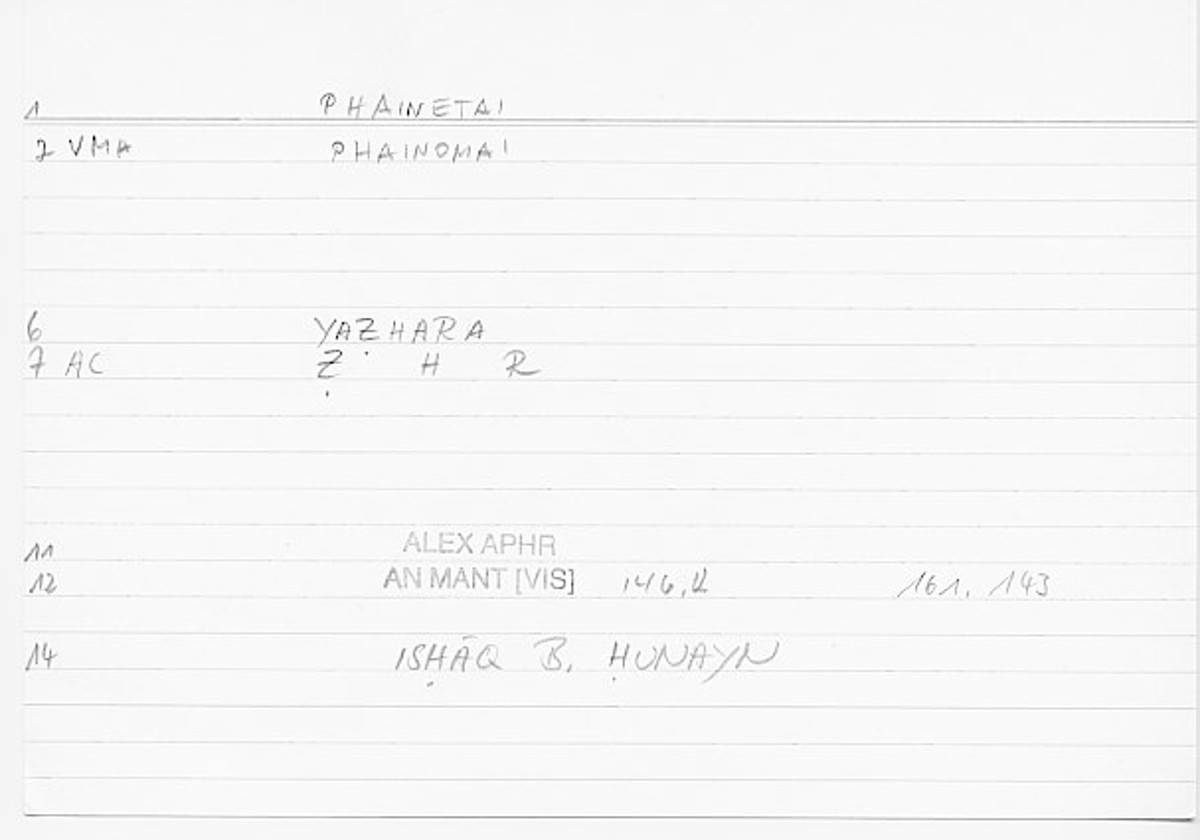 1 PHAINETAI
2 VMA PHAINOMAI
6 YAẒHARA
7 AC Ẓ H R
11 ALEX APHR
12 AN MANT [VIS] 146, 161, 143
14 ISḤĀQ B. ḤUNAYN